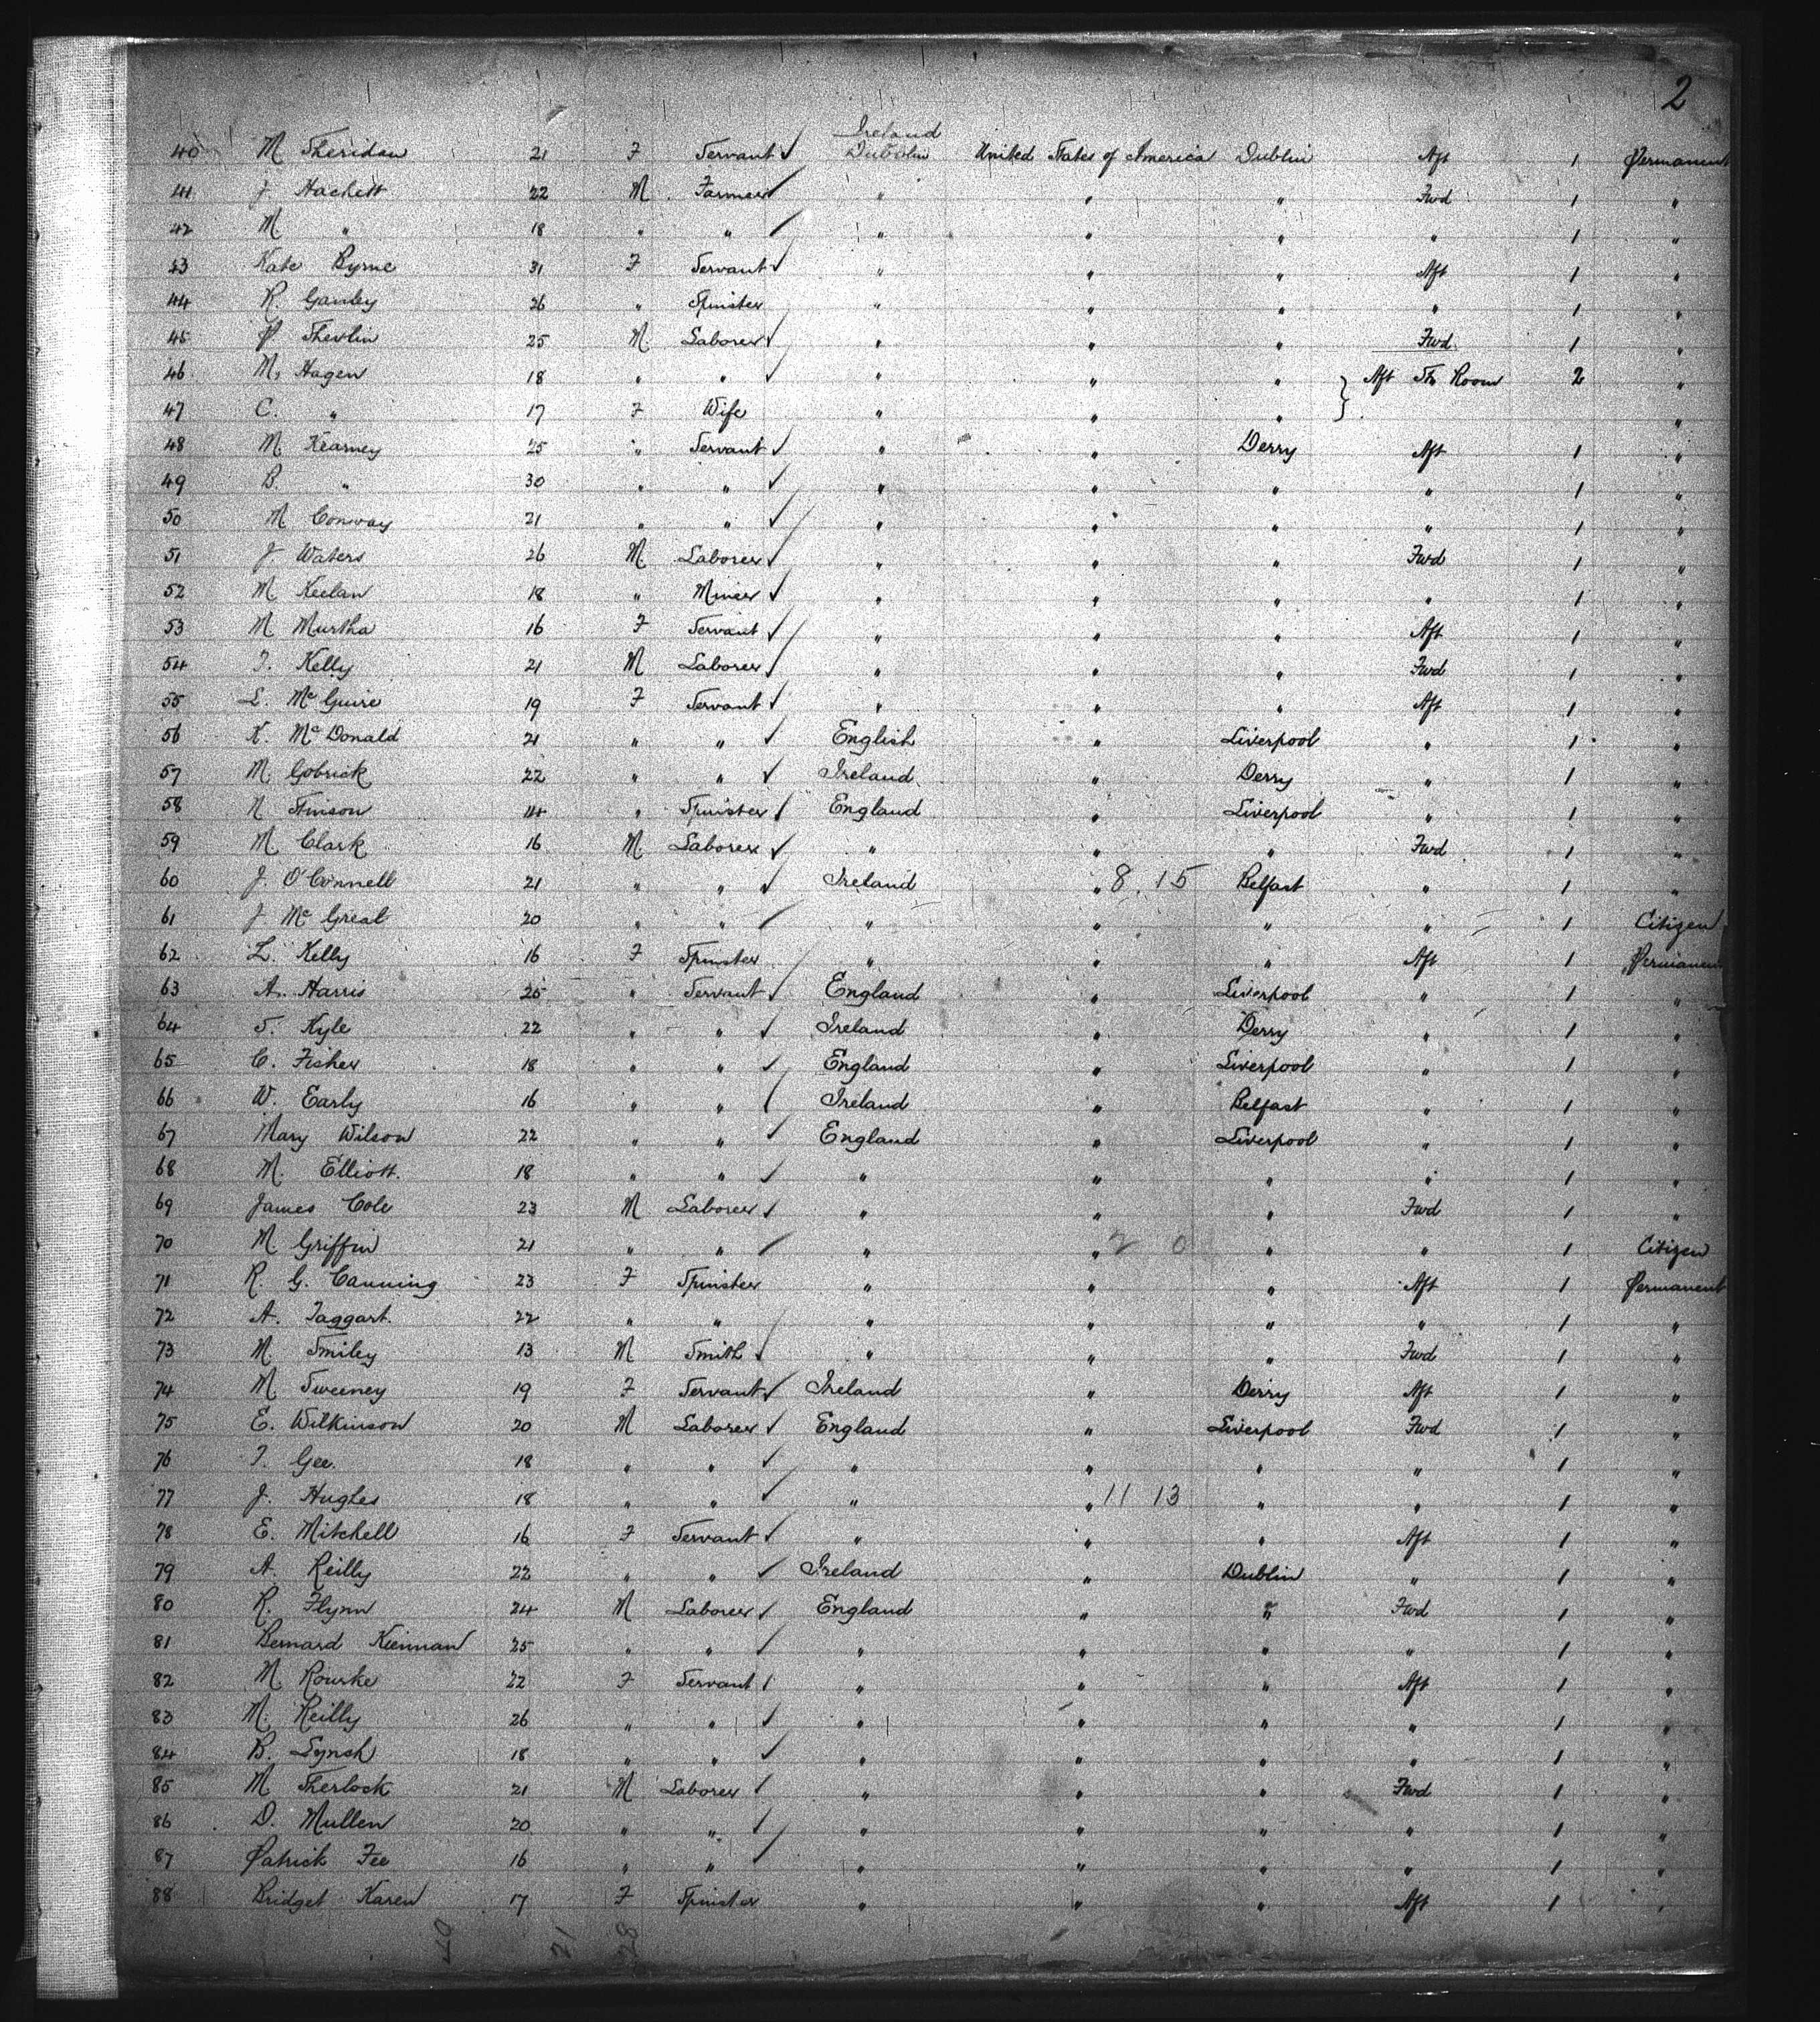 2
Ireland
40 M Sheridan 21 F Servant ✓ Dubolin United States of America Dublin Aft 1 Permanent
41 J. Hackett 22 M. Farmer ✓ " " " Fwd 1 "
42 M " 18 " " ✓ " " " " 1 "
43 Kate Byrne 31 F Servant ✓ " " " Aft 1 "
44 R. Ganley 26 " Spinster " " " " 1 "
45 P Shevlin 25 M. Laborer ✓ " " " Fwd. 1 "
46 M. Hagen 18 " " ✓ " " " } Aft St Room 2 "
47 C. " 17 F Wife " " " "
48 M Kearney 25 " Servant ✓ " " Derry Aft 1 "
49 B. " 30 " " ✓ " " " " 1 "
50 M Conway 21 " " ✓ " " " " 1 "
51 J. Waters 26 M. Laborer ✓ " " " Fwd 1 "
52 M Keelan 18 " Miner ✓ " " " " 1 "
53 M Murtha 16 F Servant ✓ " " " Aft 1 "
54 T. Kelly 21 M Laborer ✓ " " " Fwd 1 "
55 L. McGuire 19 F Servant ✓ " " " Aft 1 "
56 K. McDonald 21 " " ✓ English " Liverpool " 1 "
57 M. Gobrick 22 " " ✓ Ireland " Derry " 1 "
58 N Stinson 14 " Spinster ✓ England " Liverpool " 1 "
59 M. Clark 16 M Laborer ✓ " " " Fwd 1 "
60 J. O'Connell 21 " " ✓ Ireland " 8.15 Belfast " 1 "
61 J McGreal 20 " " ✓ " " " " 1 Citizen
62 L. Kelly 16 F Spinster " " " Aft 1 Permanen
63 A. Harris 25 " Servant ✓ England " Liverpool " 1 "
64 S. Kyle 22 " " ✓ Ireland " Derry " 1 "
65 C. Fisher 18 " " ✓ England " Liverpool " 1 "
66 W. Early 16 " " ✓ Ireland " Belfast " 1 "
67 Mary Wilson 22 " " ✓ England " Liverpool " 1 "
68 M. Elliott. 18 " " ✓ " " " " 1 "
69 James Cole 23 M Laborer ✓ " " " Fwd 1 "
70 M Griffin 21 " " ✓ " " 2 0 " " 1 Citizen
71 R. G. Canning 23 F Spinster " " " Aft 1 Permanent
72 A. Taggart. 22 " " " " " " 1 "
73 M Smiley 13 M Smith ✓ " " " Fwd 1 "
74 M Sweeney 19 F Servant ✓ Ireland " Derry Aft 1 "
75 E. Wilkinson 20 M Laborer ✓ England " Liverpool Fwd 1 "
76 T. Gee. 18 " " ✓ " " " " 1 "
77 J. Hughes 18 " " ✓ " " 11 13 " " 1 "
78 E. Mitchell 16 F Servant ✓ " " " Aft 1 "
79 A. Reilly 22 " " ✓ Ireland " Dublin " 1 "
80 R. Flynn 24 M Laborer ✓ England " " Fwd 1 "
81 Bernard Kiernan 25 " " ✓ " " " " 1 "
82 M Rourke 22 F Servant ✓ " " " Aft 1 "
83 M. Reilly 26 " " ✓ " " " " 1 "
84 B. Lynch 18 " " ✓ " " " " 1 "
85 M Sherlock 21 M Laborer ✓ " " " Fwd 1 "
86 D. Mullen 20 " " ✓ " " " " 1 "
87 Patrick Fee 16 " " ✓ " " " " 1 "
88 Bridget Karen 17 F Spinster " " " Aft 1 "
21 28